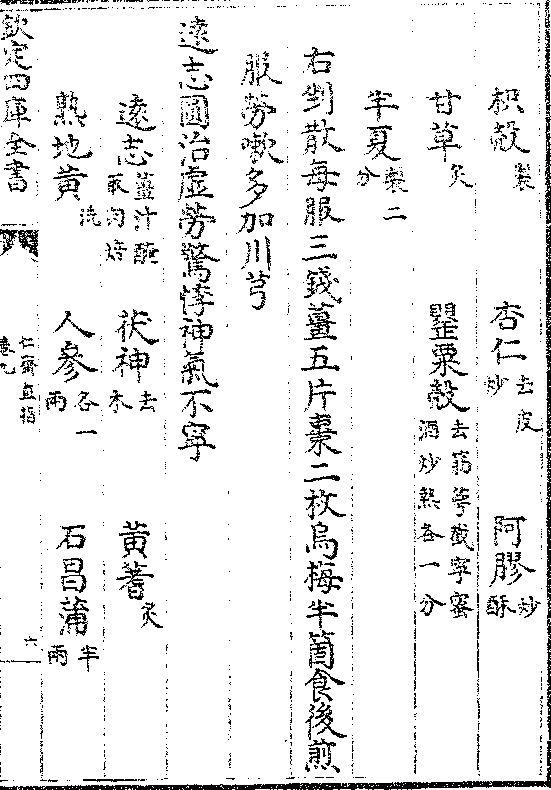 枳殼製　杏仁去皮炒　阿膠炒酥
甘草炙　罌粟殼去穰萼截寧蜜酒炒熟各一分
半夏製二分
右剉散每服三錢薑五片棗二枚烏梅半箇食後煎
服勞嗽多加川芎
遠志圓治虛勞驚悸神氣不寧
遠志薑汁醃取肉焙　茯神去木　黃蓍炙
熟地黃洗　人參各一兩　石菖蒲半兩
欽定四庫全書
仁齋直指
卷九
六